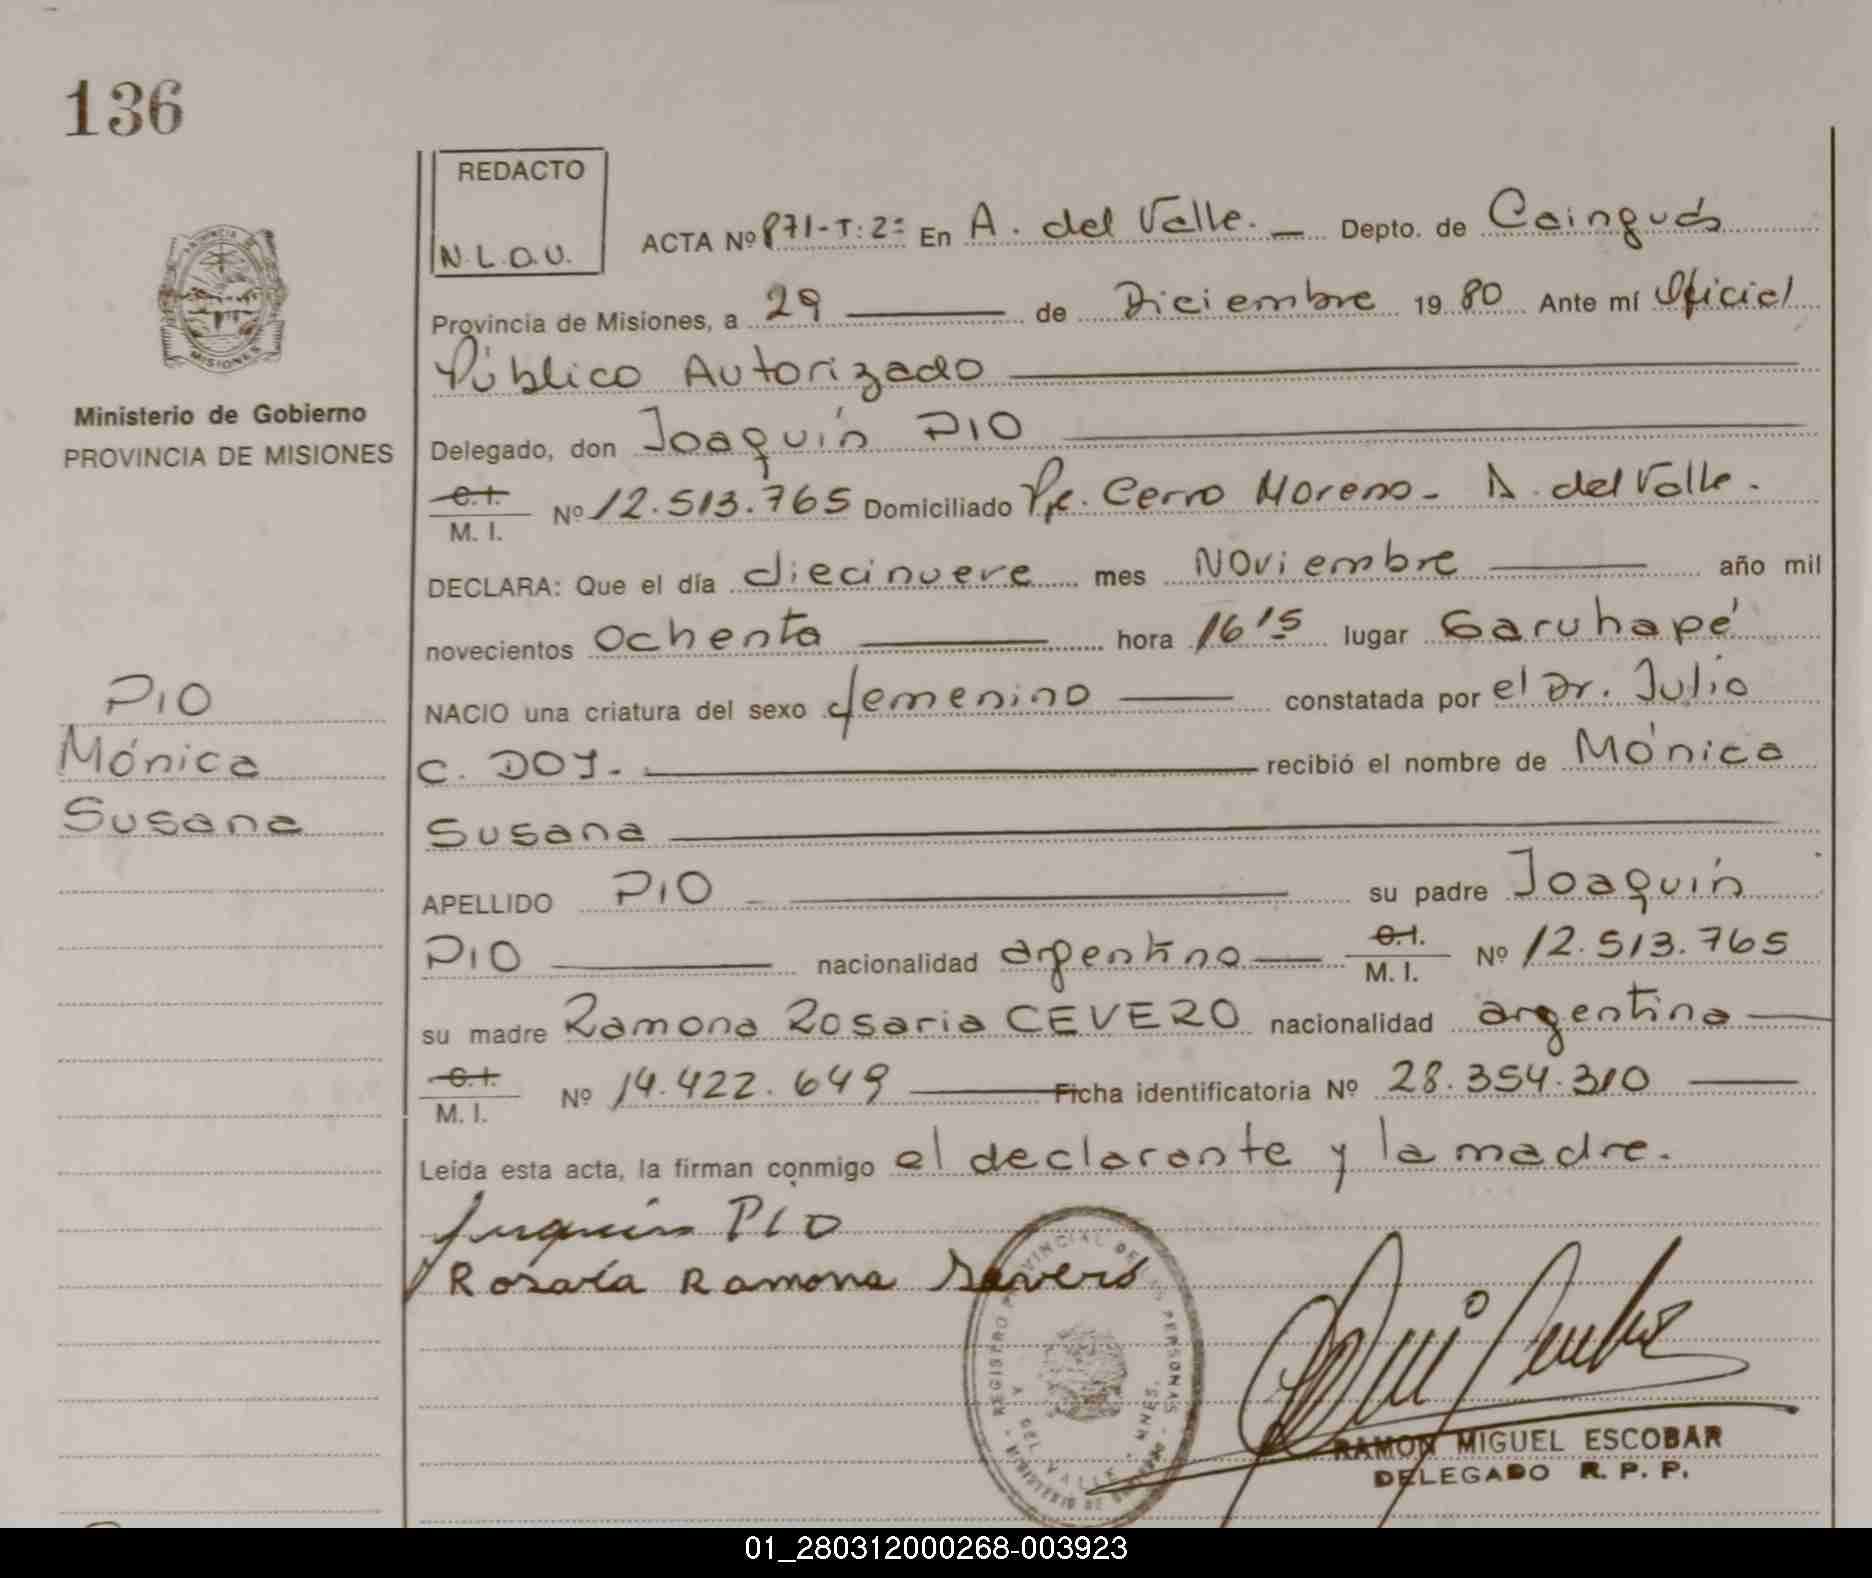 136
REDACTO
N.L.O.U.
ACTA Nº 871-T:2º En A. del Valle. — Depto. de Cainguás
Provincia de Misiones, a 29 de Diciembre 1980 Ante mí Oficial
Público Autorizado
MISIONES
Ministerio de Gobierno
PROVINCIA DE MISIONES
Delegado, don Joaquín PIO
C.I.
M. I. Nº 12.513.765 Domiciliado Pje. Cerro Moreno - A. del Valle.
DECLARA: Que el día diecinueve mes Noviembre año mil
novecientos ochenta hora 16 15 lugar Garuhapé
NACIO una criatura del sexo femenino constatada por el Dr. Julio
C. DOY. recibió el nombre de Mónica
Susana
PIO
Mónica
Susana
APELLIDO PIO su padre Joaquín
PIO nacionalidad argentino C.I. M. I. Nº 12.513.765
su madre Ramona Rosaria CEVERO nacionalidad argentina
C.I.
M. I. Nº 14.422.649 Ficha identificatoria Nº 28.354.310
Leída esta acta, la firman conmigo el declarante y la madre.
Juaquin PIO
Rosaria Ramona Severo
REGISTRO PROVINCIAL DE PERSONAS
A. DEL VALLE - MNES.
RAMON MIGUEL ESCOBAR
DELEGADO R. P. P.
01_280312000268-003923